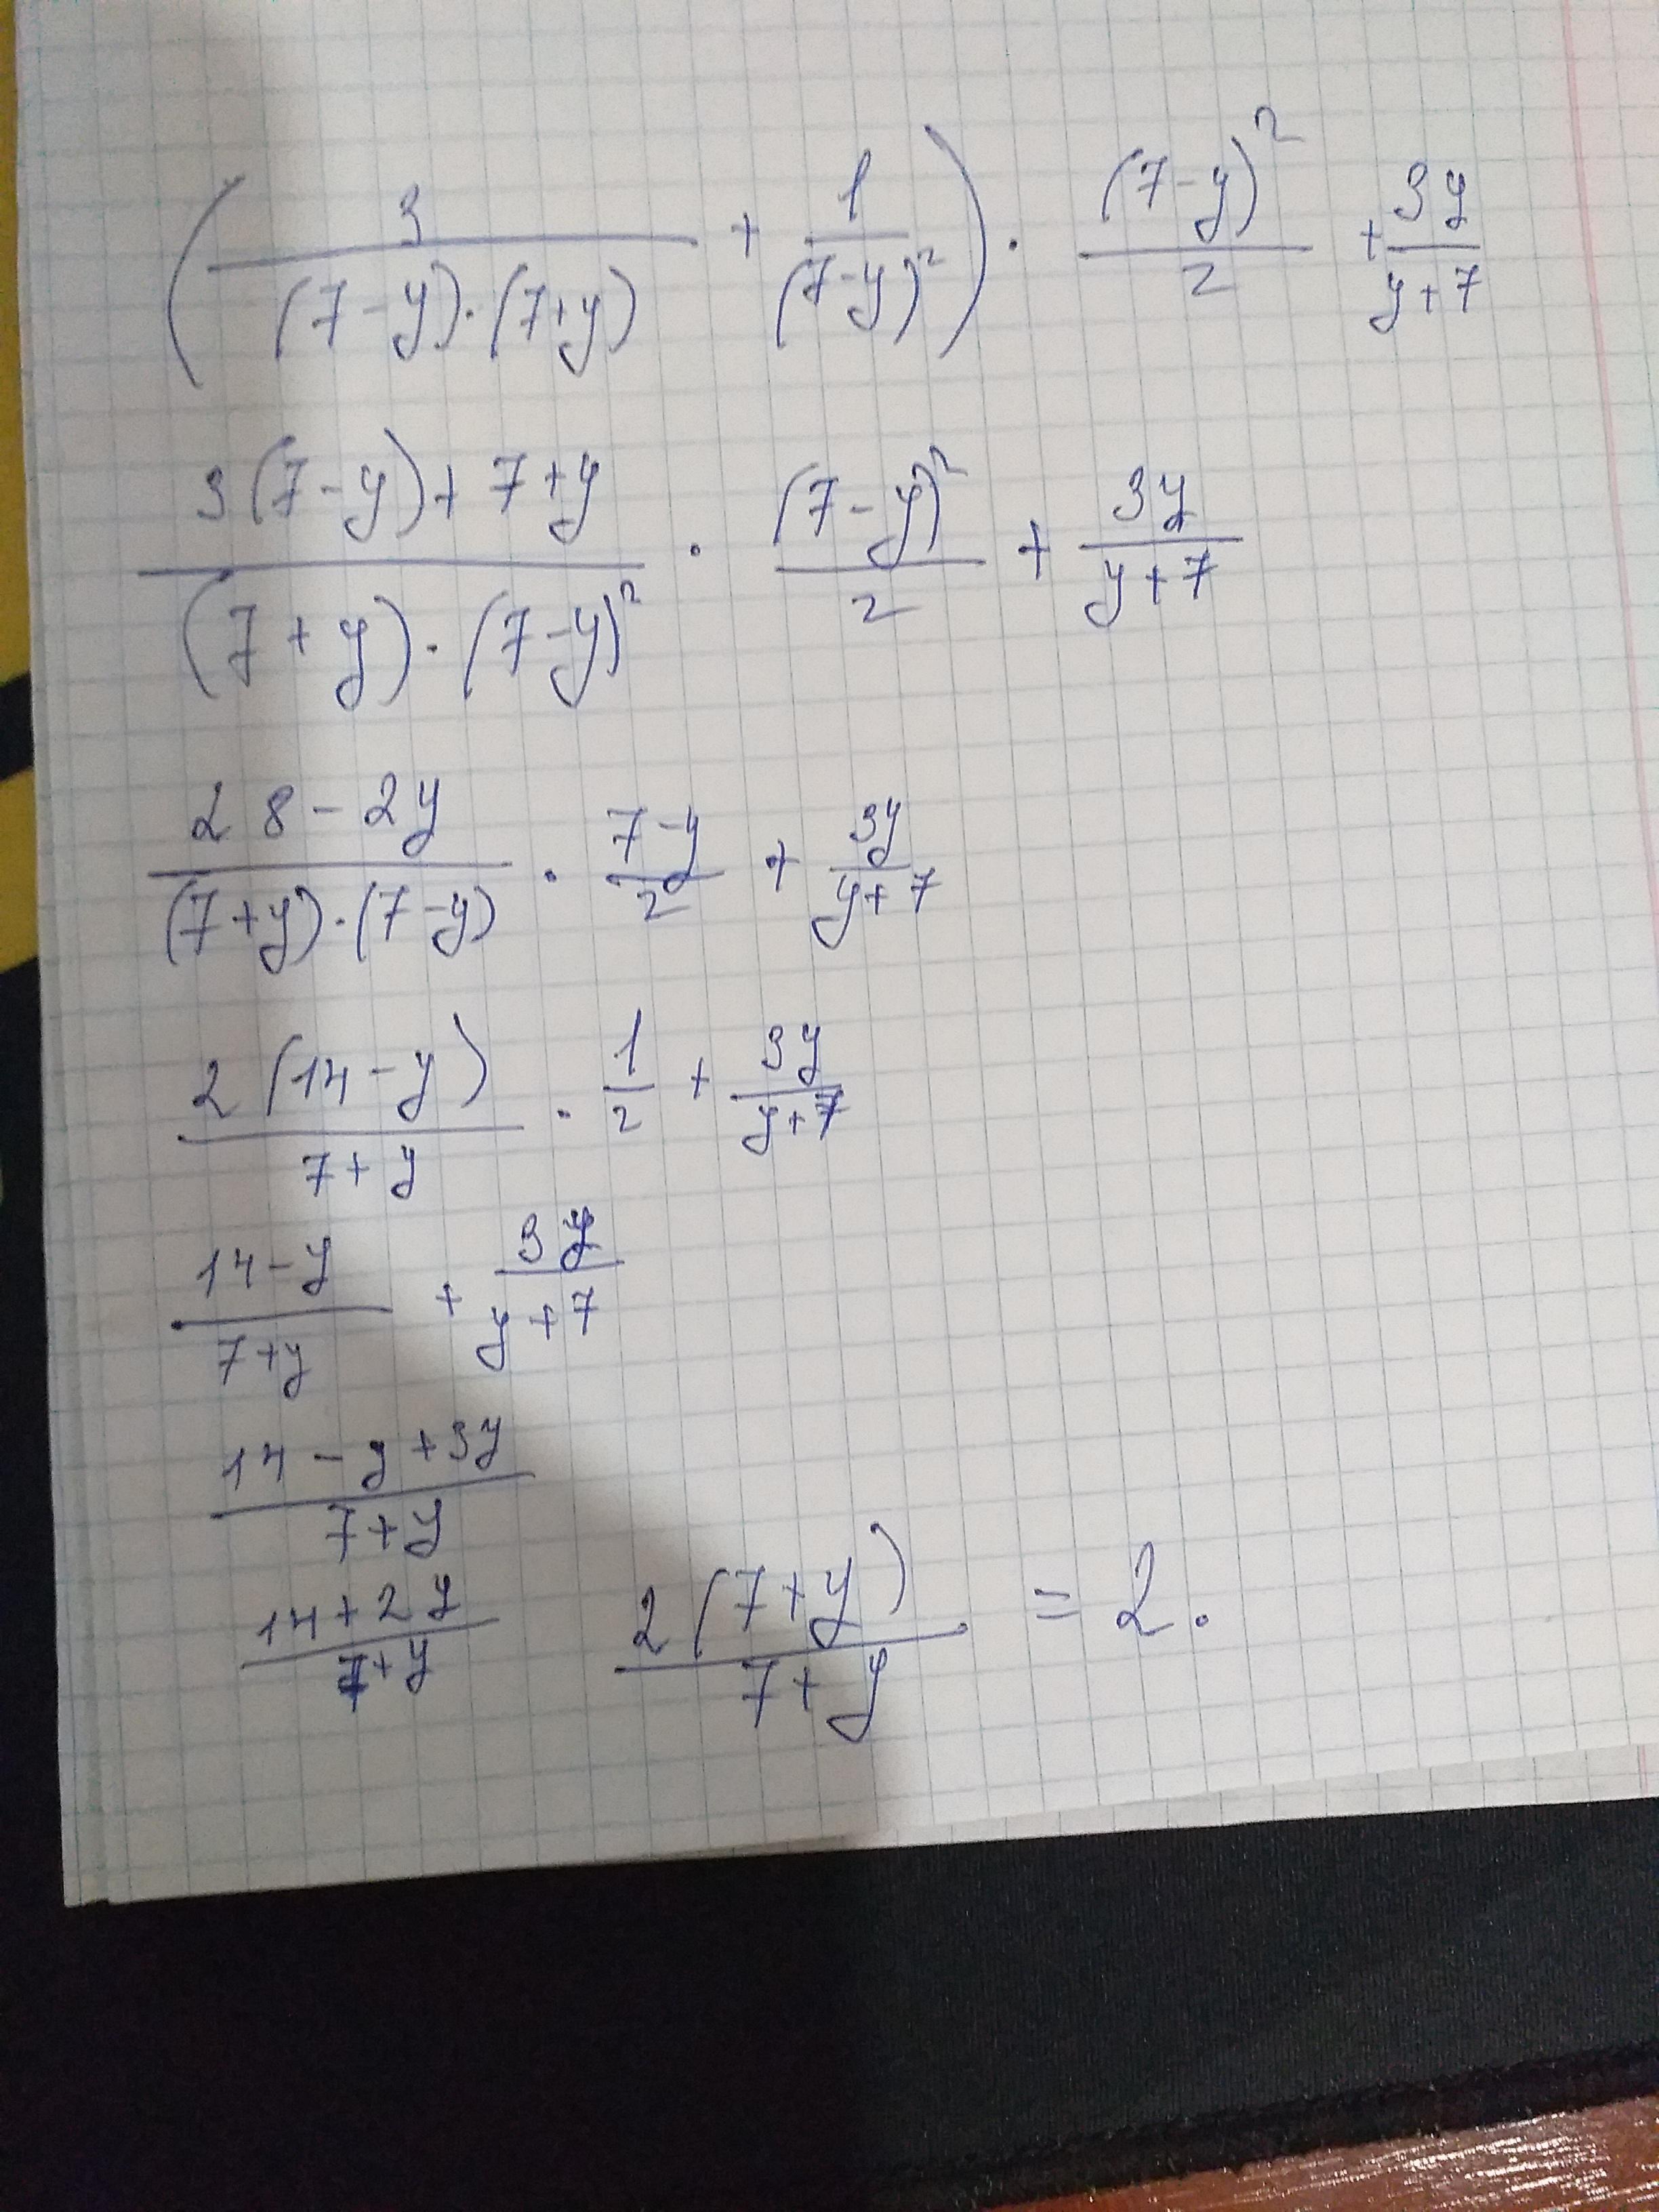 (3/((7-y)·(7+y)) + 1/(7-y)²) · (7-y)²/2 + 3y/(y+7)
(3(7-y)+7+y)/((7+y)·(7-y)²) · (7-y)²/2 + 3y/(y+7)
(28-2y)/((7+y)·(7-y)) · (7-y)/2 + 3y/(y+7)
2(14-y)/(7+y) · 1/2 + 3y/(y+7)
(14-y)/(7+y) + 3y/(y+7)
(14-y+3y)/(7+y)
(14+2y)/(7+y) 2(7+y)/(7+y) = 2.